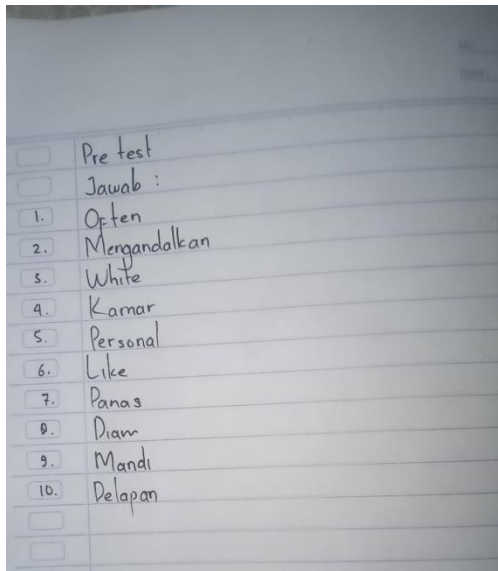 Pre test
Jawab :
1. Often
2. Mengandalkan
3. White
4. Kamar
5. Personal
6. Like
7. Panas
8. Diam
9. Mandi
10. Delapan